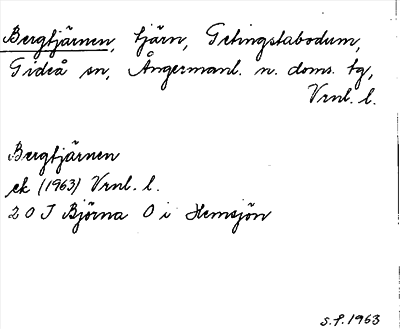 Bergtjärnen, tjärn, Getingstabodum,
Gideå sn, Ångermanl. n. doms. tg,
Vrnl. l.
Bergtjärnen
ek (1963) Vrnl. l.
20 J Björna O i Hemsjön
S.F. 1963